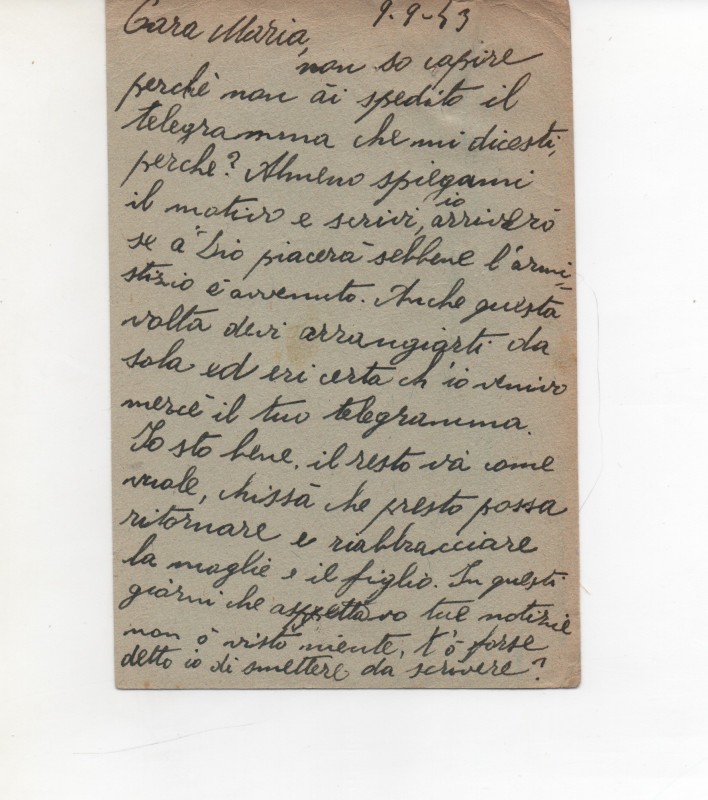 Cara Maria, 9-9-43
non so capire
perchè non ài spedito il
telegramma che mi dicesti,
perche? Almeno spiegami
il motivo e scrivi, io arriverò
se a Dio piacerà sebbene l'armi=
stizio è avvenuto. Anche questa
volta devi arrangiarti da
sola ed eri certa ch'io venivo
mercè il tuo telegramma.
Io sto bene, il resto và come
vuole, chissà che presto possa
ritornare e riabbracciare
la moglie e il figlio. In questi
giorni che aspettavo tue notizie
non ò visto niente, t'ò forse
detto io di smettere da scrivere?